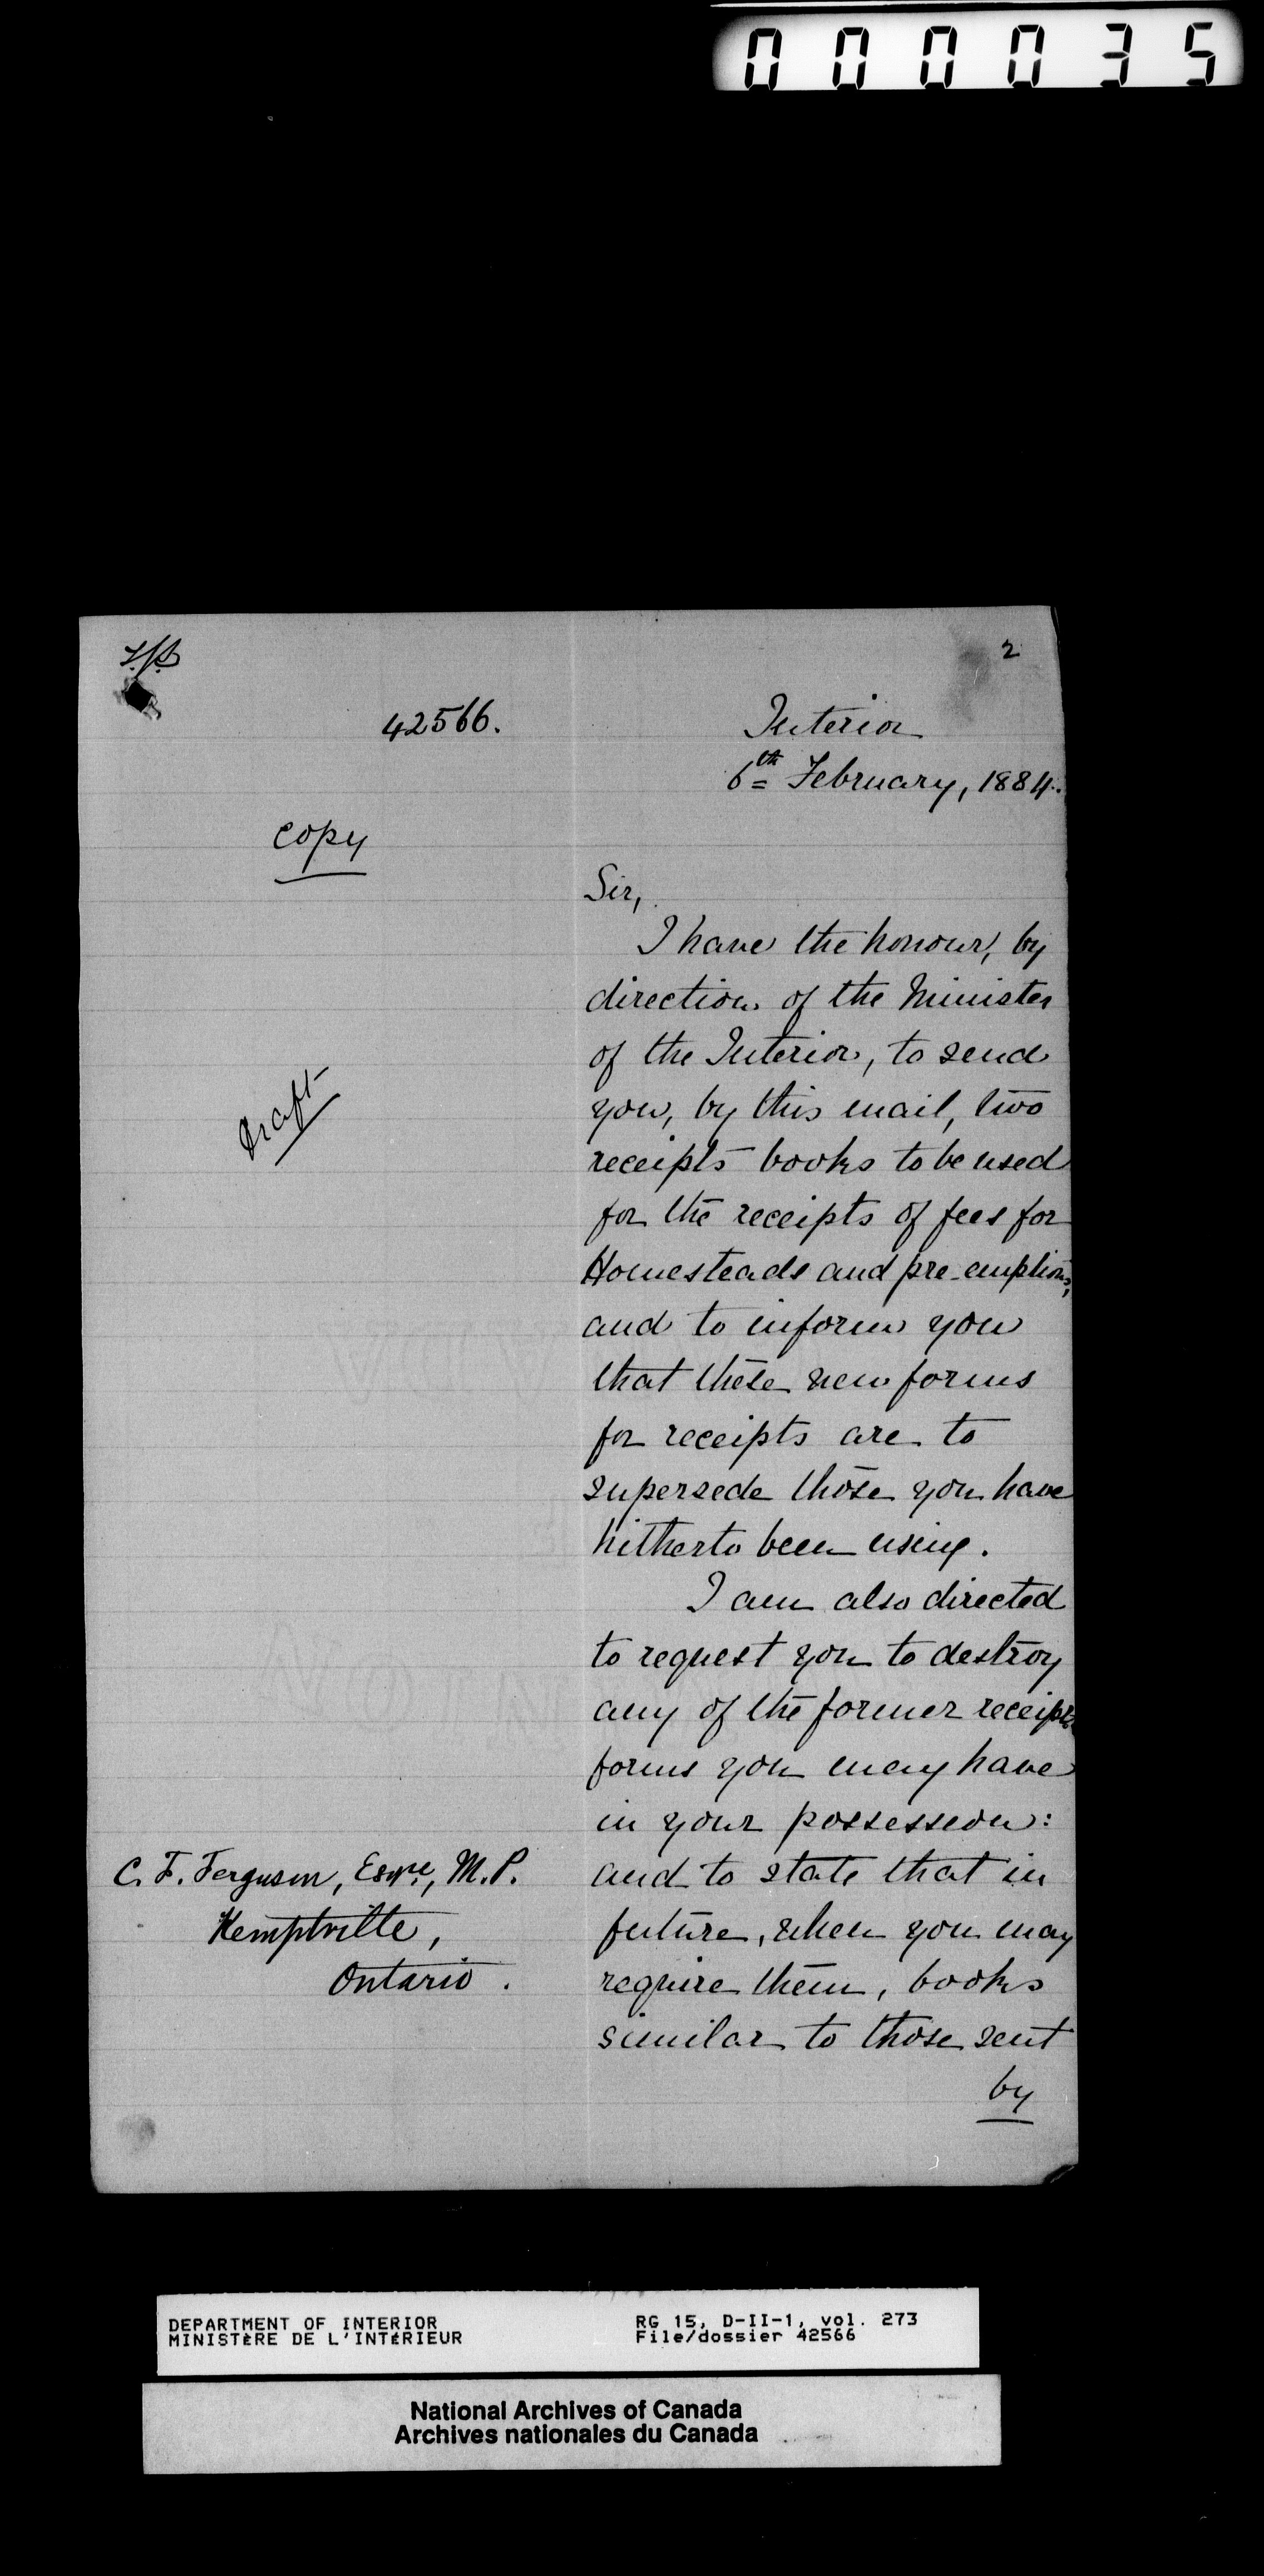 000035
2
42566.
Interior
6th February, 1884.
Copy
Sir,
I have the honour, by
direction of the Minister
of the Interior, to send
you, by this mail, two
receipts books to be used
for the receipts of fees for
Homesteads and pre-emptions,
and to inform you
that these new forms
for receipts are to
supersede those you have
hitherto been using.
I am also directed
to request you to destroy
any of the former receipt
forms you may have
in your possession:
and to state that in
future, when you may
require them, books
similar to those sent
by
Draft
C. F. Ferguson, Esqre, M.P.
Kemptville,
Ontario.
DEPARTMENT OF INTERIOR
MINISTÈRE DE L'INTÉRIEUR
RG 15, D-II-1, vol. 273
File/dossier 42566
National Archives of Canada
Archives nationales du Canada